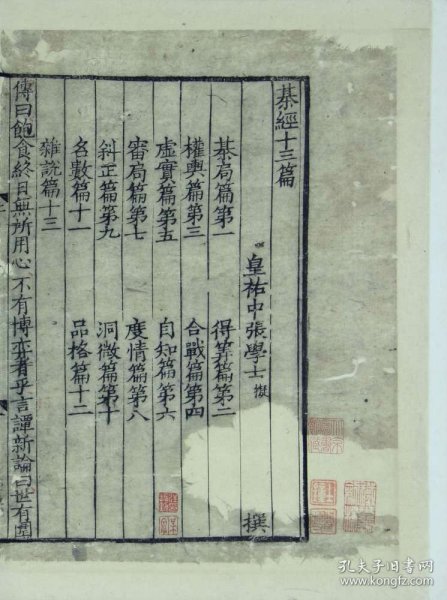 棊經十三篇
皇祐中張學士擬 撰
棊局篇第一 得筭篇第二
權輿篇第三 合戰篇第四
虛實篇第五 自知篇第六
審局篇第七 度情篇第八
斜正篇第九 洞微篇第十
名數篇十一 品格篇十二
雜說篇十三
傳曰飽食終日無所用心不有博弈者乎言譚新論曰世有圍
孔夫子旧书网
www.kongfz.com